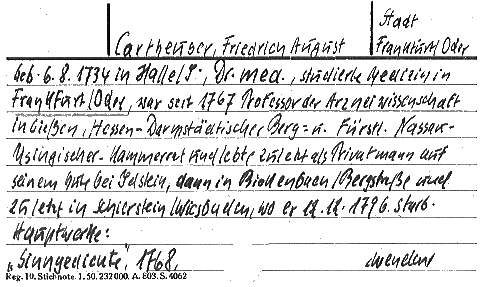 Stadt
Cartheuser, Friedrich August Frankfurt/Oder
geb. 6.8. 1734 in Halle/S., Dr. med., studierte Medizin in
Frankfurt/Oder, war seit 1767 Professor der Arzneiwissenschaft
in Gießen, Hessen-Darmstädtischer Berg= u. Fürstl. Nassau-
Usingischer Kammerrat und lebte zuletzt als Privatmann auf
seinem Gute bei Idstein, dann in Bickenbach/Bergstraße und
zuletzt in Schierstein/Wiesbaden, wo er 12.12.1796 starb.
Hauptwerke:
"Sinngedichte", 1768, wenden!
Reg. 10. Stichnote. 1. 50. 232000. A. 803. S. 4062